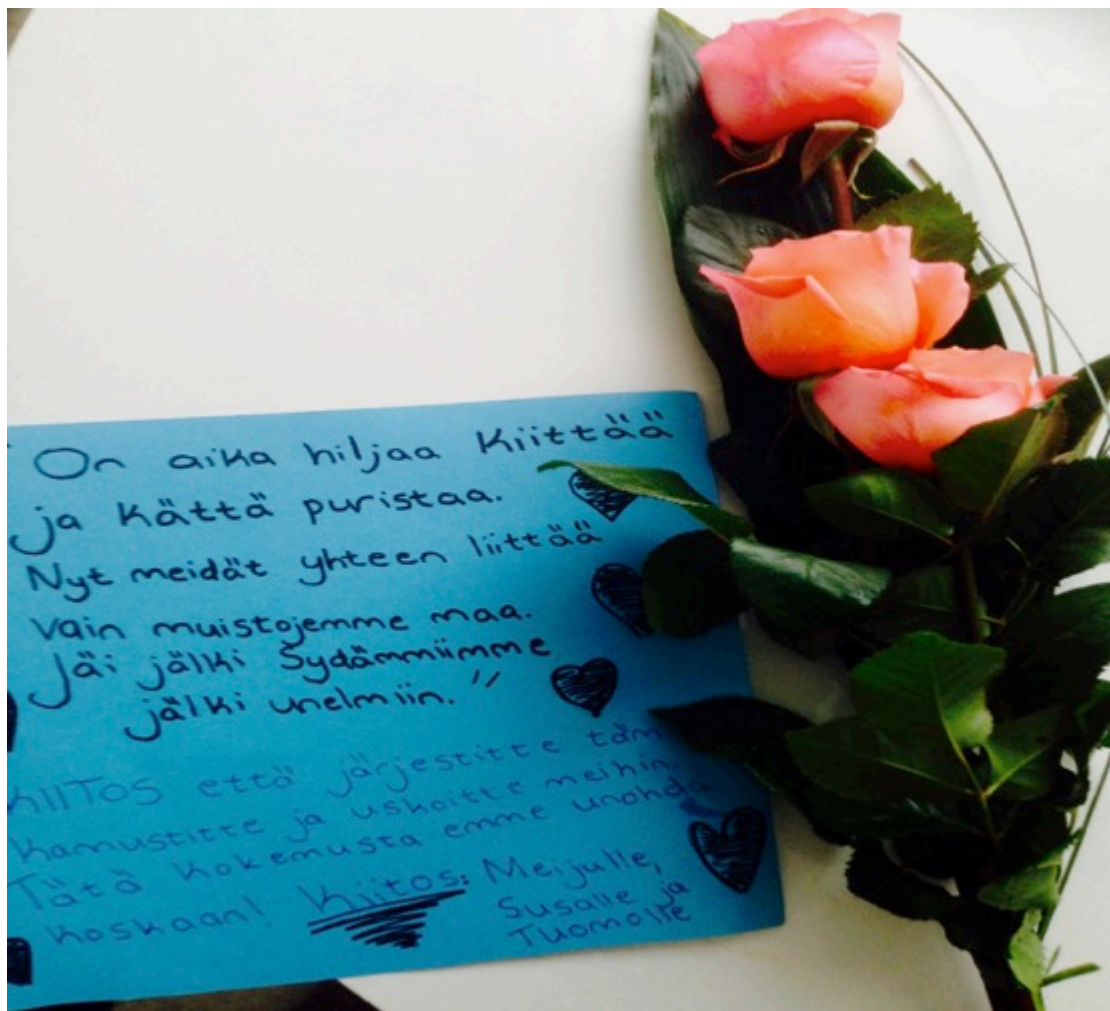 "On aika hiljaa kiittää
ja kättä puristaa.
Nyt meidät yhteen liittää
vain muistojemme maa.
Jäi jälki sydämmiimme
jälki unelmiin."
KIITOS että järjestitte
kamustitte ja uskoitte meihin.
Tätä kokemusta emme unohda
koskaan! Kiitos: Meijulle,
Susalle ja
Tuomolle